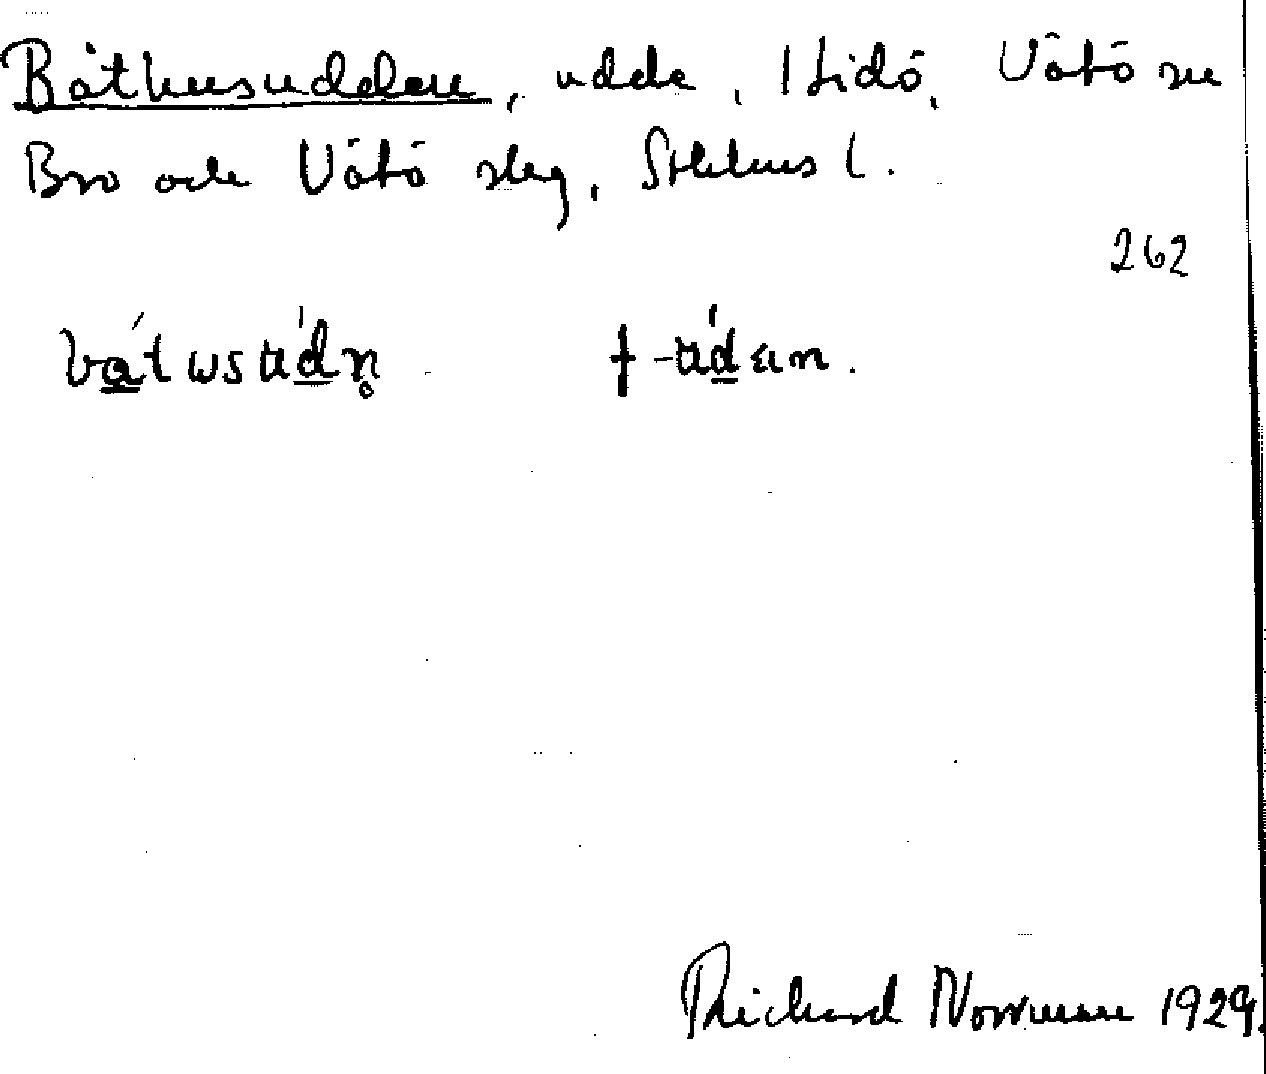 Båthusudden, udde, Lidö, Vätö sn
Bro och Vätö slg, Sthlms l.
262
bátusúdn̥ † -údan.
Richard Norrman 1929.